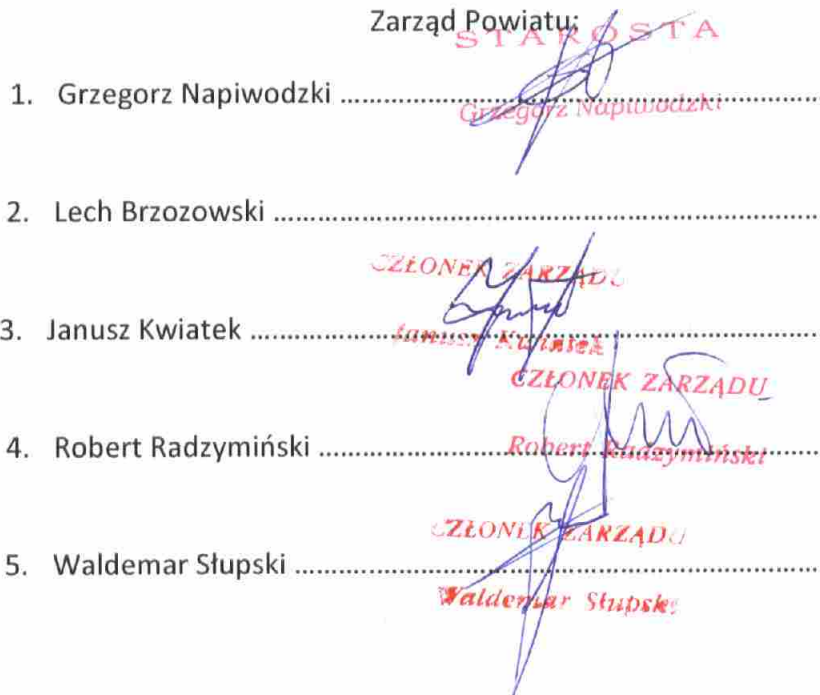 Zarząd Powiatu:
STAROSTA
1. Grzegorz Napiwodzki ................................................
Grzegorz Napiwodzki
2. Lech Brzozowski ................................................
CZŁONEK ZARZĄDU
3. Janusz Kwiatek ................................................
Janusz Kwiatek
CZŁONEK ZARZĄDU
4. Robert Radzymiński ................................................
Robert Radzymiński
CZŁONEK ZARZĄDU
5. Waldemar Słupski ................................................
Waldemar Słupski